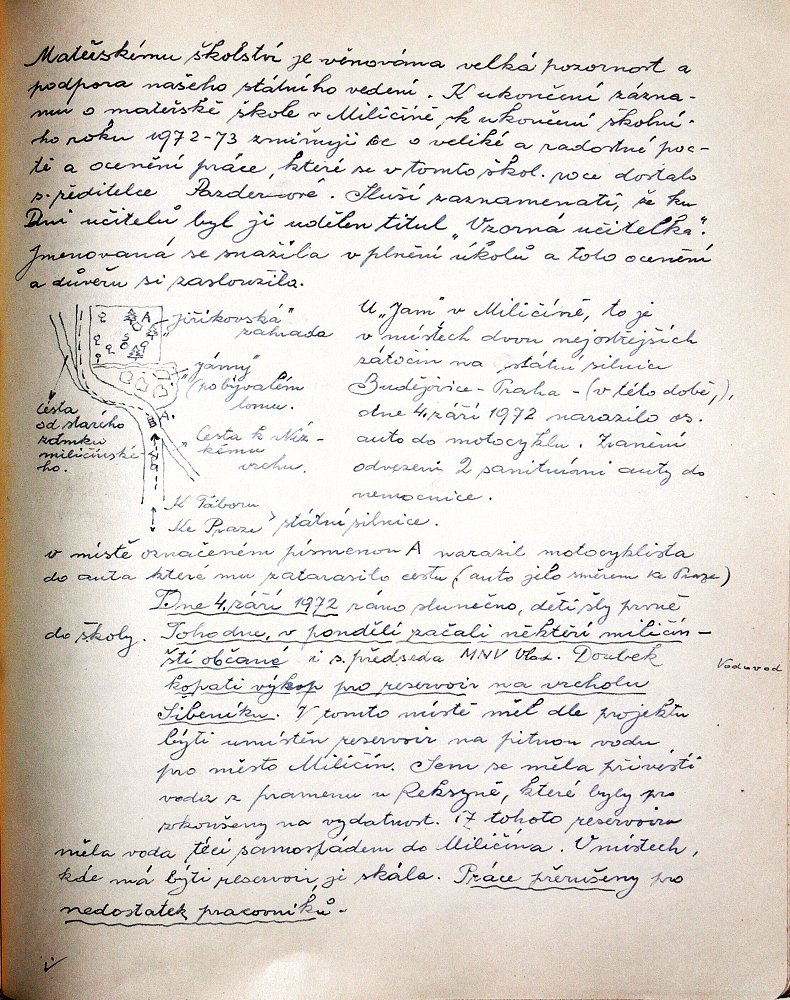 Mateřskému školství je věnována velká pozornost a
podpora našeho státního vedení. K ukončení zázna-
mu o mateřské škole v Miličíně, k ukončení školní-
ho roku 1972-73 zmiňuji se o veliké a radostné poc-
tě a ocenění práce, které se v tomto škol. roce dostalo
s. ředitelce Pazdernové. Sluší zaznamenati, že ku
Dni učitelů byl jí udělen titul „Vzorná učitelka".
Jmenovaná se snažila v plnění úkolů a toto ocenění
a důvěru si zasloužila.
A
„Jiříkovská"
zahrada
„jámy"
(po bývalém
lomu.
cesta
od starého
zámku
miličínské-
ho.
A.
Cesta k Níz-
kému
vrchu.
K Táboru
Ke Praze > státní silnice.
U „Jam" v Miličíně, to je
v místech dvou nejostřejších
zatočin na státní silnice
Budějovice - Praha - (v této době),
dne 4. září 1972 narazilo os.
auto do motocyklu. Zranění
odvezeni 2 sanitními auty do
nemocnice.
v místě označeném písmenou A narazil motocyklista
do auta které mu zatarasilo cestu (auto jelo směrem ku Praze)
Dne 4. září 1972 ráno slunečno, děti šly prvně
do školy. Toho dne, v pondělí začali někteří miličín-
ští občané i s. předseda MNV Vlad. Doubek
Vodovod
kopati výkop pro reservoir na vrcholu
Šibeníku. V tomto místě měl dle projektu
býti umístěn reservoir na pitnou vodu
pro město Miličín. Sem se měla přivésti
voda z pramenu u Reksyně, které byly pro
zkoušeny na vydatnost. Z tohoto reservoiru
měla voda téci samospádem do Miličína. V místech,
kde má býti reservoir, je skála. Práce přerušeny pro
nedostatek pracovníků.